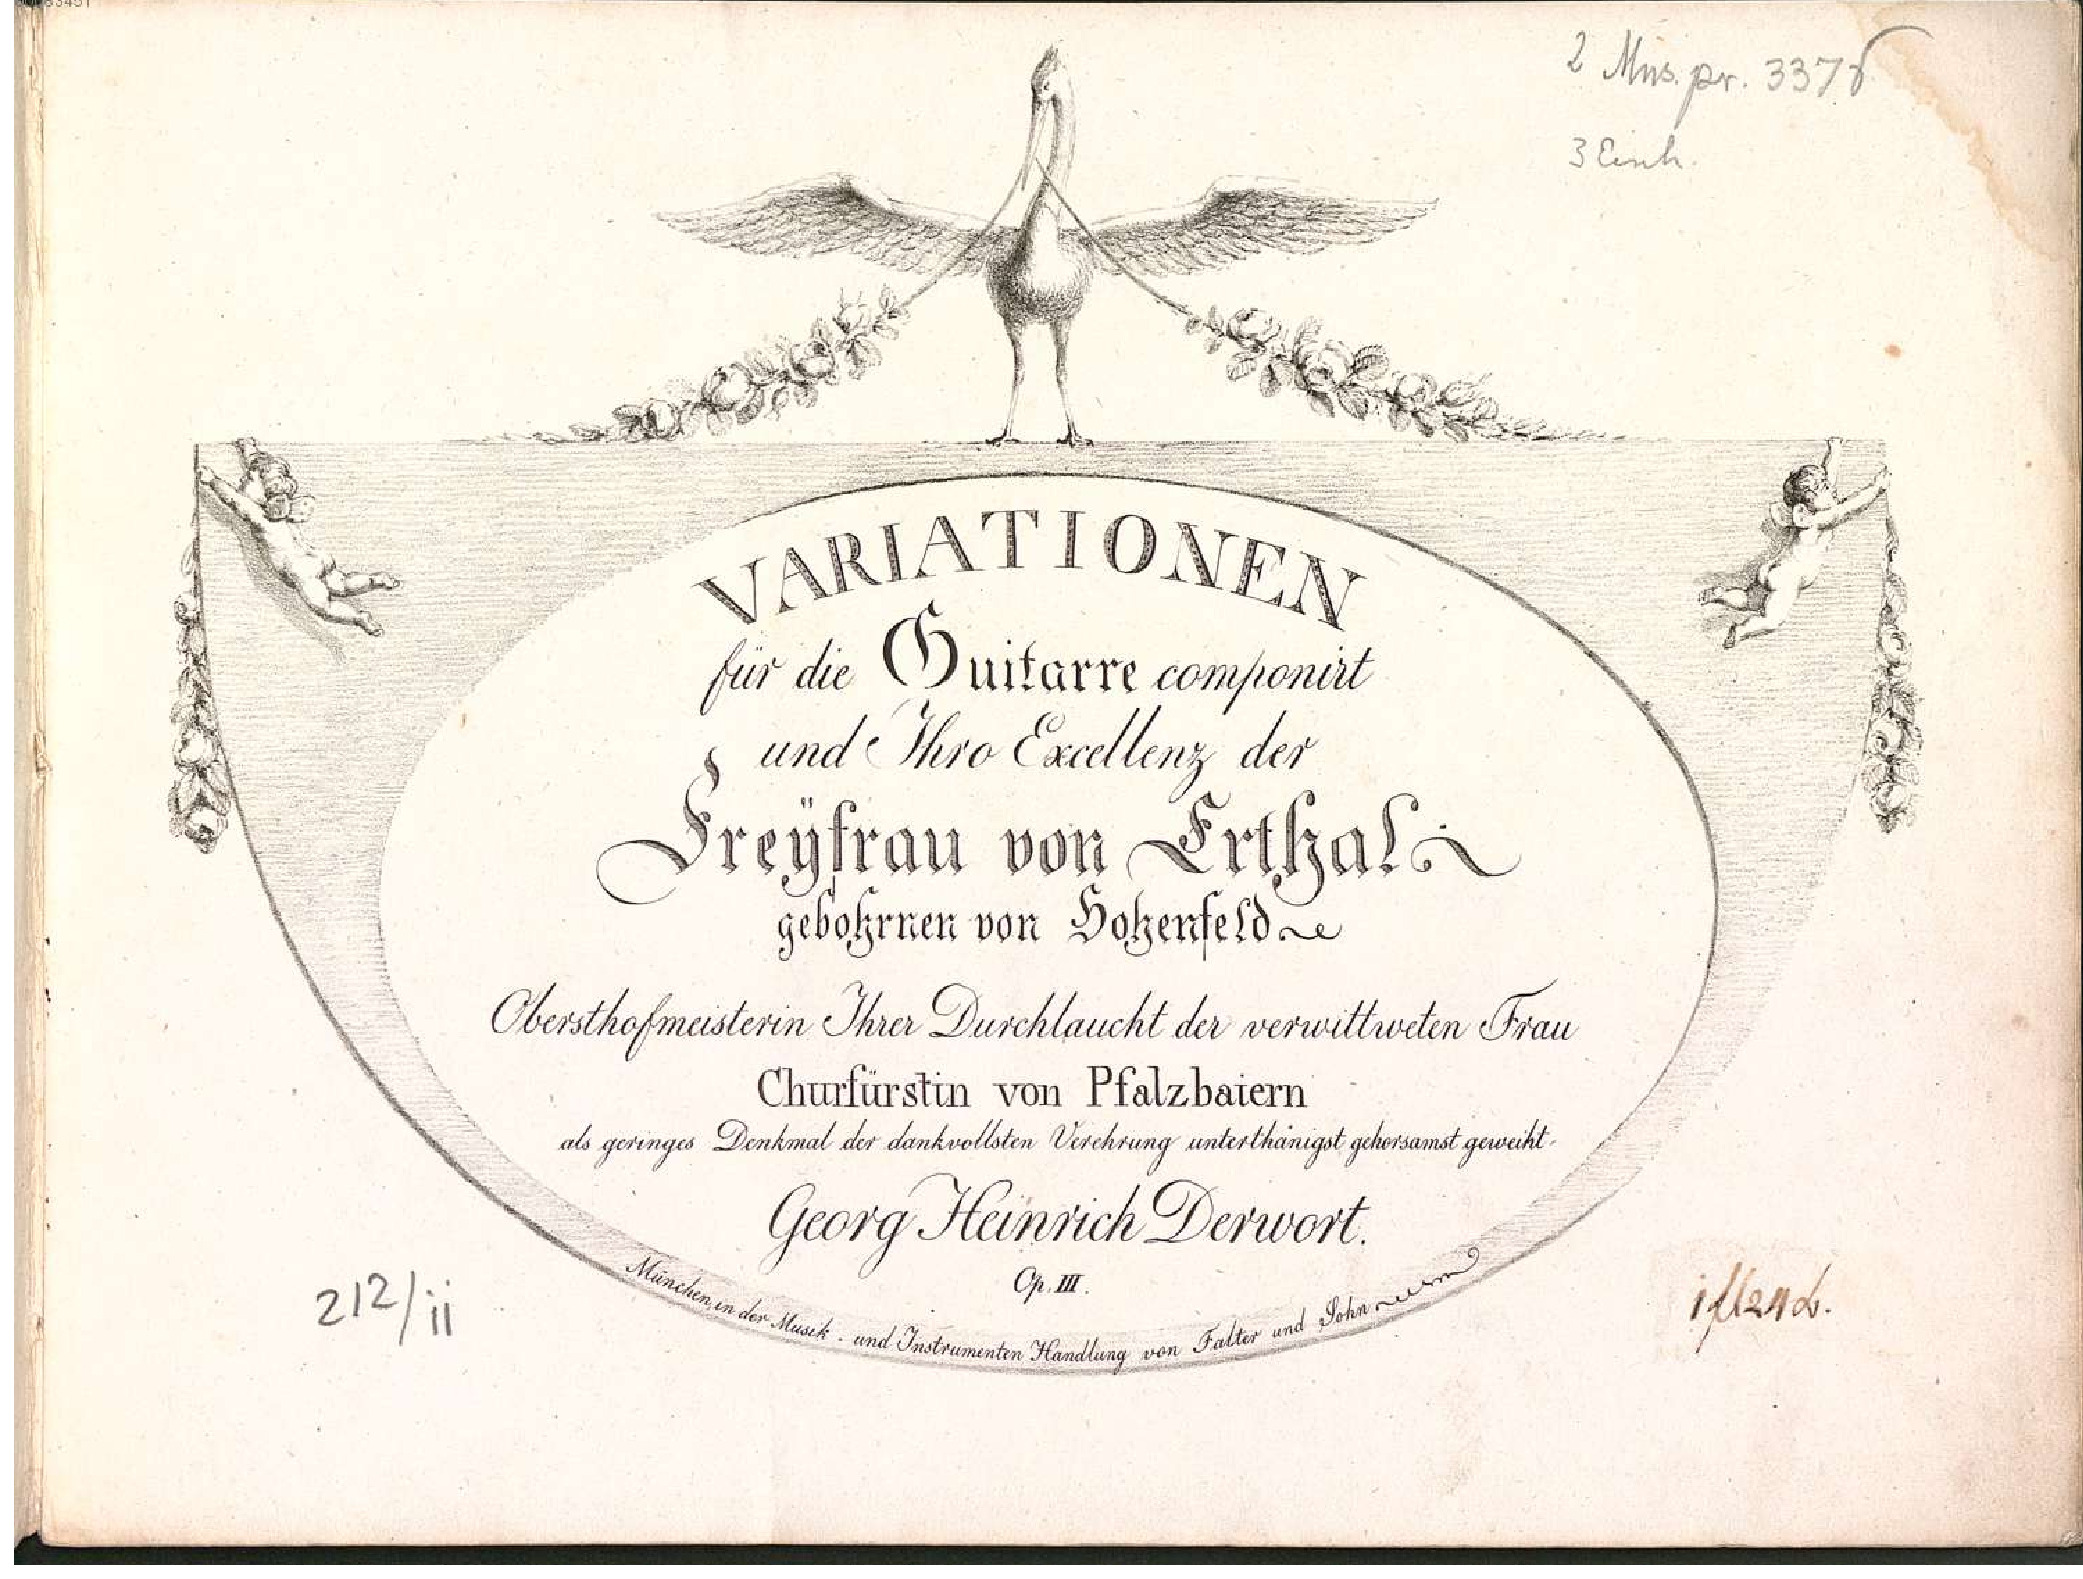 2 Mus. pr. 3378
3 Einh.
VARIATIONEN
für die Guitarre componirt
und Ihro Excellenz der
Freÿfrau von Erthal
gebohrnen von Hohenfeld
Obersthofmeisterin Ihrer Durchlaucht der verwittweten Frau
Churfürstin von Pfalzbaiern
als geringes Denkmal der dankvollsten Verehrung unterthänigst gehorsamst geweiht.
Georg Heinrich Derwort.
Op. III.
München, in der Musik- und Instrumenten Handlung von Falter und Sohn
212/ii